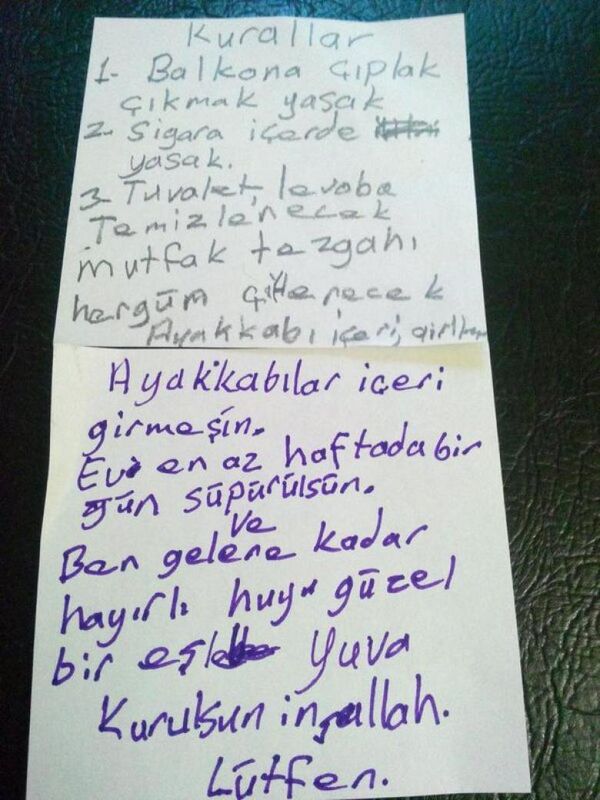 Kurallar
1- Balkona çıplak
çıkmak yasak
2- Sigara içerde
yasak.
3- Tuvalet, lavoba
Temizlenecek
mutfak tezgahı
hergün
Ayakkabı içeri,
Ayakkabılar içeri
girmeşin.
Ev en az haftada bir
gün süpürülsün.
ve
Ben gelene kadar
hayırlı huyu güzel
bir eşle yuva
Kurulsun inşallah.
Lütfen.